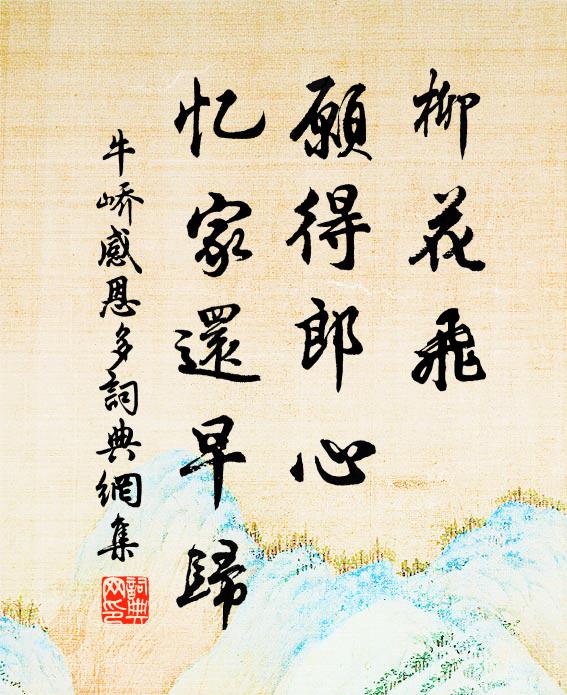 柳花飛
願得郎心
忆家還早歸
牛嶠感恩多詞典網集
詞典网印